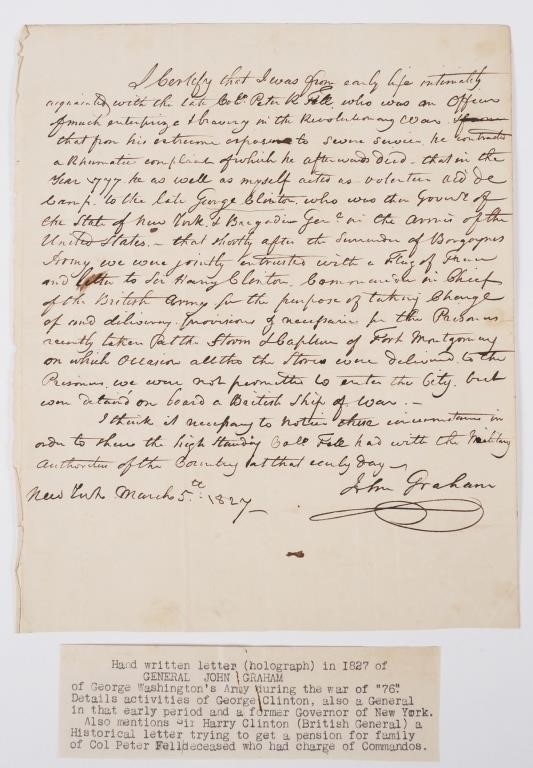 I Certify that I was from early life intimately
acquainted with the late Colo. Peter R Fell, who was an Officer
of much enterprize & bravery in the Revolutionary War.
that from his extreme exposure to severe service he contracted
a Rhumatic complaint of which he afterward died - that in the
Year 1777 he as well as myself acted as volenteer aid de
Camp. to the late George Clinton, who was then Govenor of
the State of New York. & Brigadier Genl. in the Armies of the
United States. - that shortly after the Surrender of Burgoynes
Army we were jointly entrusted with a Flag of Truce
and letter to Sir Harry Clinton. Commander in Chief
of the British Army for the purpose of taking Charge
of and delivering provisions & necessaries for the Prisoners
recently taken at the Storm & Capture of Fort Montgomery
on which Occasion altho the Stores were delivered to the
Prisoners, we were not permitted to enter the City. but
were detained on board a British Ship of War. -
I think it necessary to notice these circumstances in
order to shew the high Standing Colo. Fell had with the Military
Authorities of the Country at that early day -
New York March 5th. 1827 - John Graham
Hand written letter (holograph) in 1827 of
GENERAL JOHN GRAHAM
of George Washington's Army during the war of "76"
Details activities of George Clinton, also a General
in that early period and a former Governor of New York.
Also mentions Sir Harry Clinton (British General) a
Historical letter trying to get a pension for family
of Col Peter Felldeceased who had charge of Commandos.